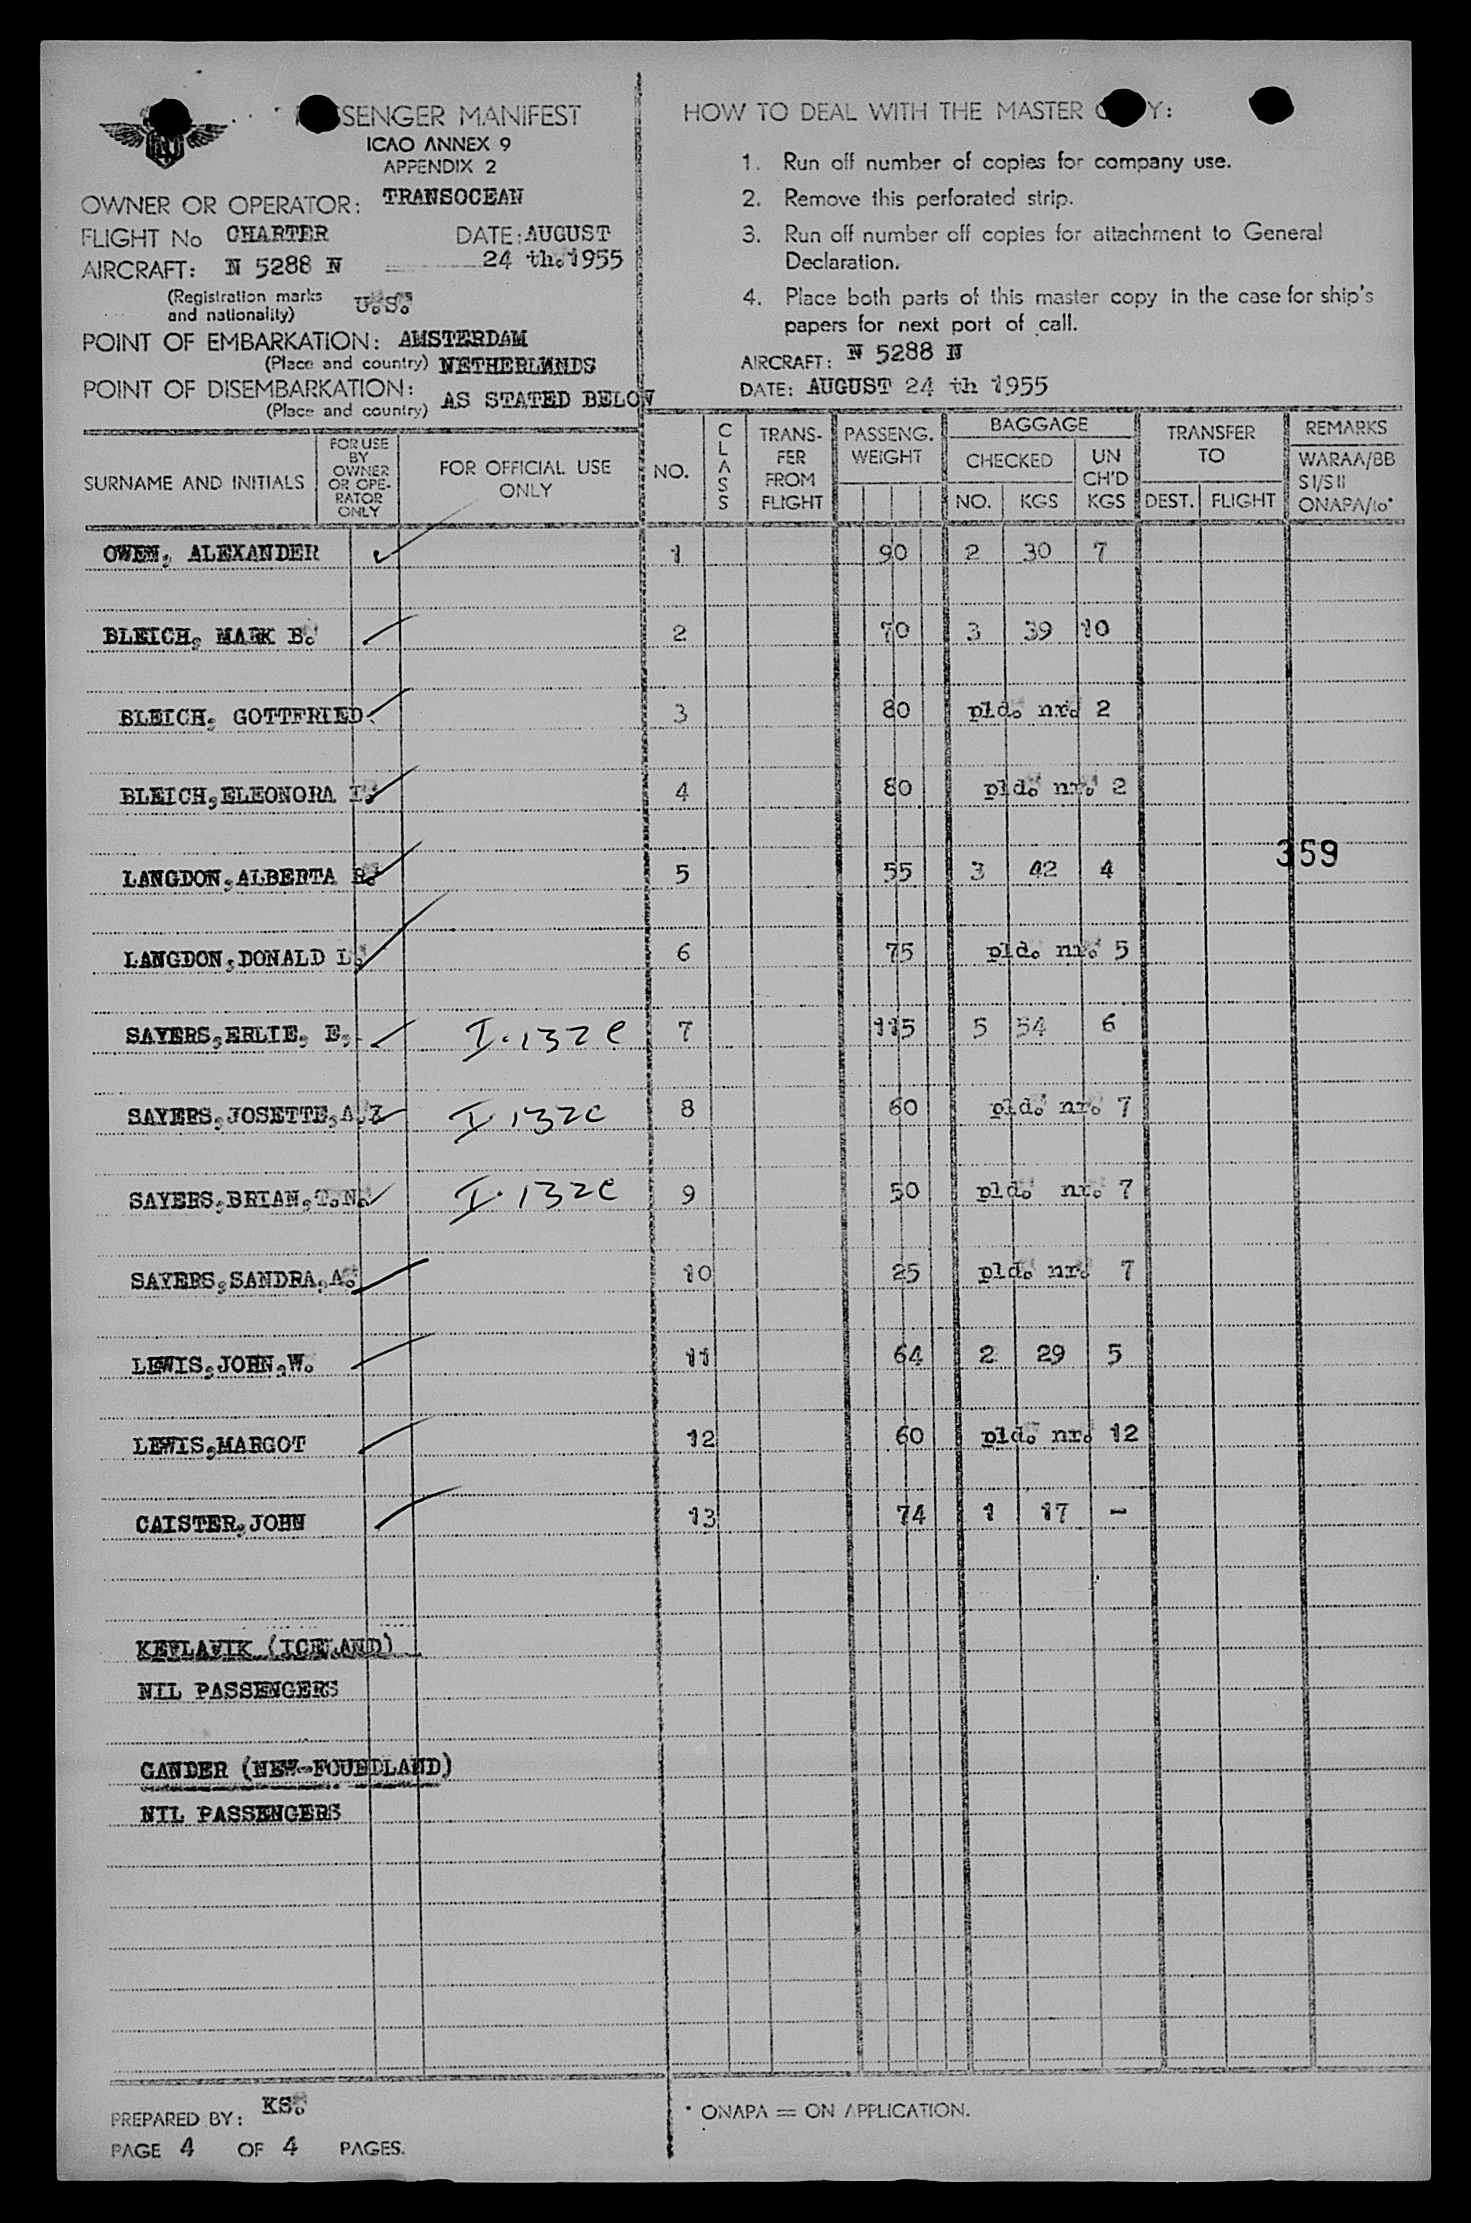 SENGER MANIFEST
ICAO ANNEX 9
APPENDIX 2
OWNER OR OPERATOR: TRANSOCEAN
FLIGHT No CHARTER DATE: AUGUST
AIRCRAFT: N 5288 N 24 th. 1955
(Registration marks
and nationality) U.S.
POINT OF EMBARKATION: AMSTERDAM
(Place and country) NETHERLANDS
POINT OF DISEMBARKATION:
(Place and country) AS STATED BELOW
HOW TO DEAL WITH THE MASTER C Y:
1. Run off number of copies for company use.
2. Remove this perforated strip.
3. Run off number off copies for attachment to General
Declaration.
4. Place both parts of this master copy in the case for ship's
papers for next port of call.
AIRCRAFT: N 5288 N
DATE: AUGUST 24 th 1955
SURNAME AND INITIALS
FOR USE
BY
OWNER
OR OPE-
RATOR
ONLY
FOR OFFICIAL USE
ONLY
NO.
CLASS
TRANS-
FER
FROM
FLIGHT
PASSENG.
WEIGHT
BAGGAGE
CHECKED
NO. KGS
UN
CH'D
KGS
TRANSFER
TO
DEST. FLIGHT
REMARKS
WARAA/BB
SI/SII
ONAPA/to*
OWEN, ALEXANDER 1 90 2 30 7
BLEICH, MARK B. 2 70 3 39 10
BLEICH, GOTTFRIED 3 80 pld. nr. 2
BLEICH, ELEONORA 4 80 pld. nr. 2
359
LANGDON, ALBERTA 5 55 3 42 4
LANGDON, DONALD L. 6 75 pld. nr. 5
SAYERS, ERLIE, E. I-132e 7 115 5 54 6
SAYERS, JOSETTE, A. I-132e 8 60 pld. nr. 7
SAYERS, BRIAN, T.N. I-132e 9 50 pld. nr. 7
SAYERS, SANDRA, A. 10 25 pld. nr. 7
LEWIS, JOHN, W. 11 64 2 29 5
LEWIS, MARGOT 12 60 pld. nr. 12
CAISTER, JOHN 13 74 1 17 -
KEFLAVIK (ICELAND)
NIL PASSENGERS
GANDER (NEW-FOUNDLAND)
NIL PASSENGERS
PREPARED BY: KS.
PAGE 4 OF 4 PAGES.
* ONAPA = ON APPLICATION.